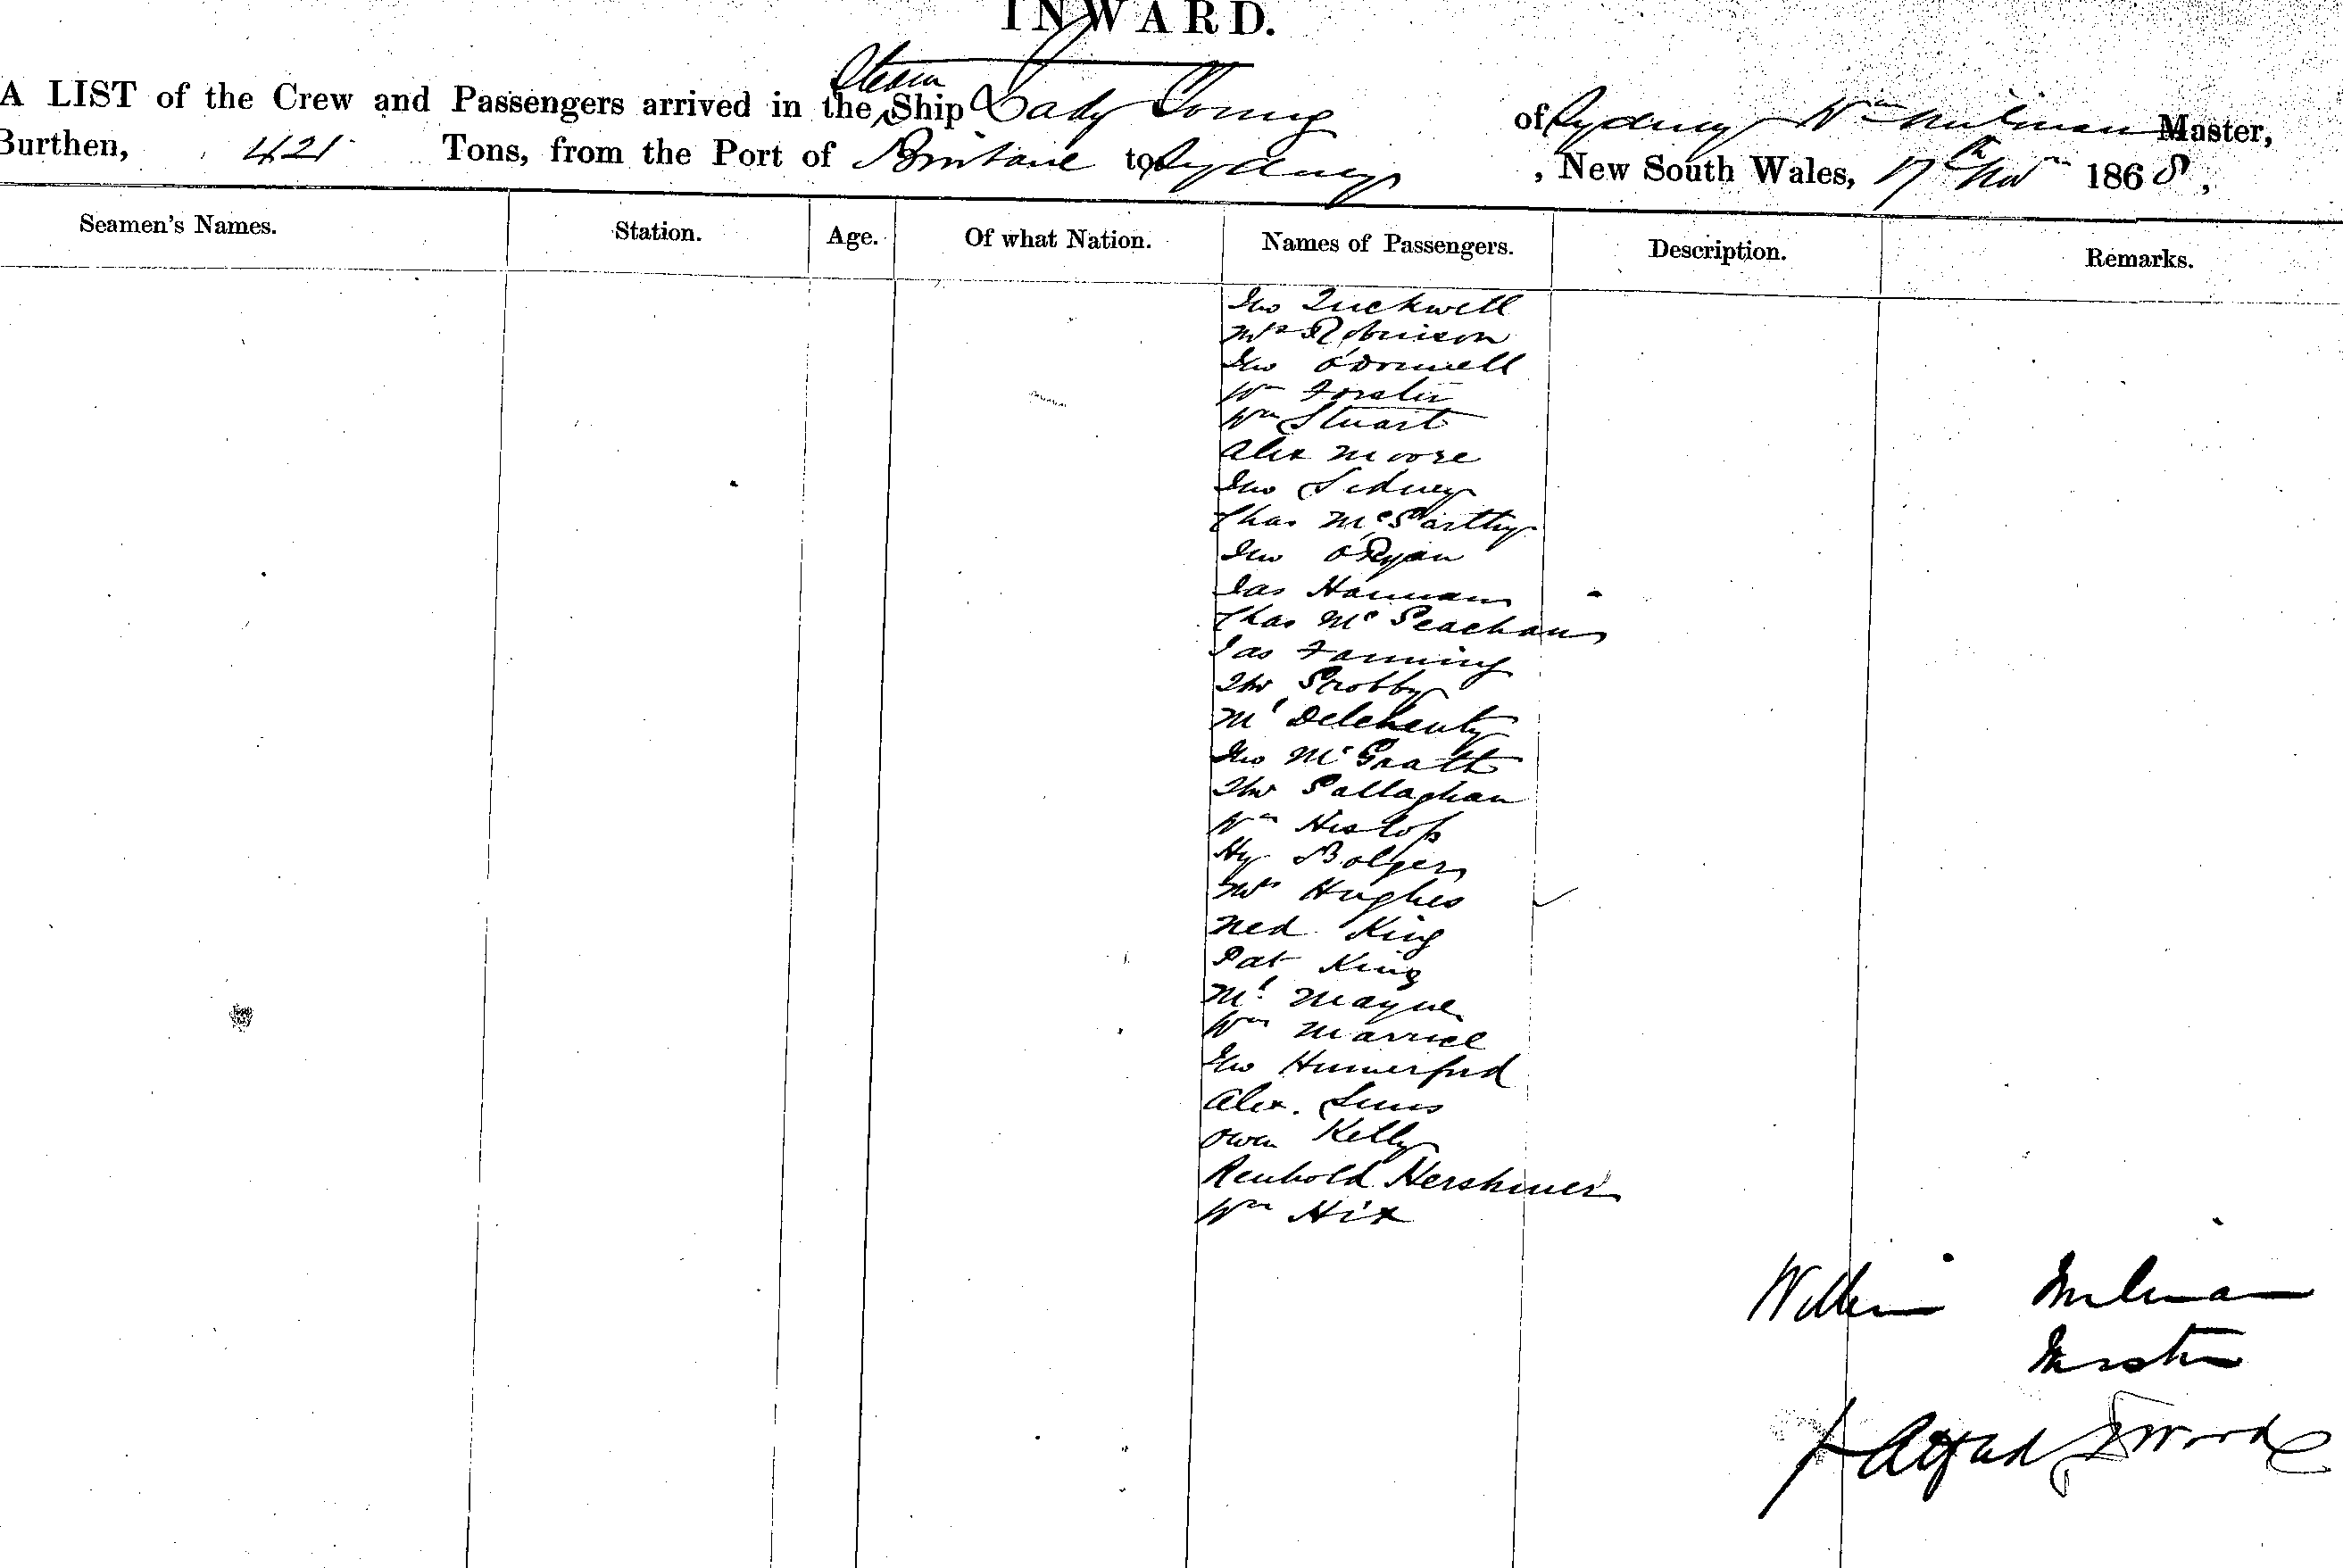 INWARD.
A LIST of the Crew and Passengers arrived in the Steam Ship Lady Young of Sydney Wm Milman Master,
Burthen, 421 Tons, from the Port of Brisbane to Sydney, New South Wales, 17th Nov 1868,
Seamen's Names. Station. Age. Of what Nation. Names of Passengers. Description. Remarks.
Jno Tuckwell
Mrs Robinson
Jno O'Donnell
Wm Forster
Wm Stuart
Alex Moore
Jno Sidney
Chas McCarthy
Jno O'Ryan
Jas Hannan
Chas McGeachan
Jas Fanning
Thos
Mr Delehenty
Jno McGrath
Thos Callaghan
Wm Hislop
Hy Bolger
Mrs Hughes
Ned King
Pat King
Mr Mayne
Wm
Jno
Alex.
Owen Kelly
Reuhold
Wm Hix
William Milman
Master
Alfred Wood